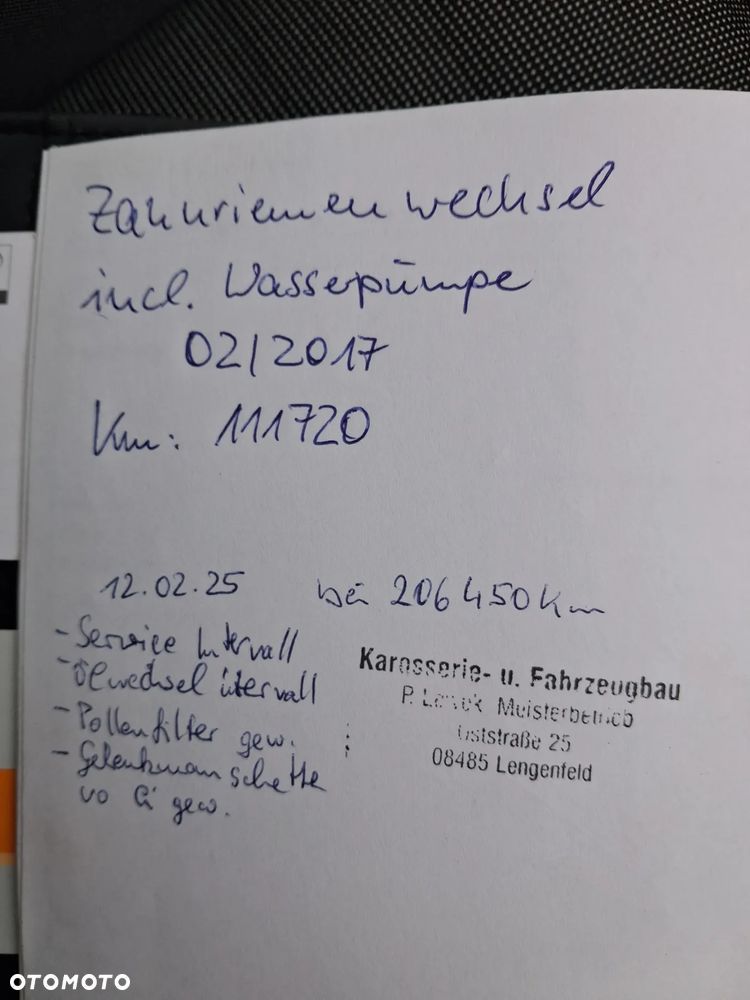 Zahnriemenwechsel
incl. Wasserpümpe
02/2017
Km: 111720
12.02.25 bei 206450 Km
- Service Intervall
- Ölwechsel intervall
- Pollenfilter gew.
- Gelenkmanschette
vo li gew.
Karosserie- u. Fahrzeugbau
P. Meisterbetrieb
Oststraße 25
08485 Lengenfeld
OTOMOTO